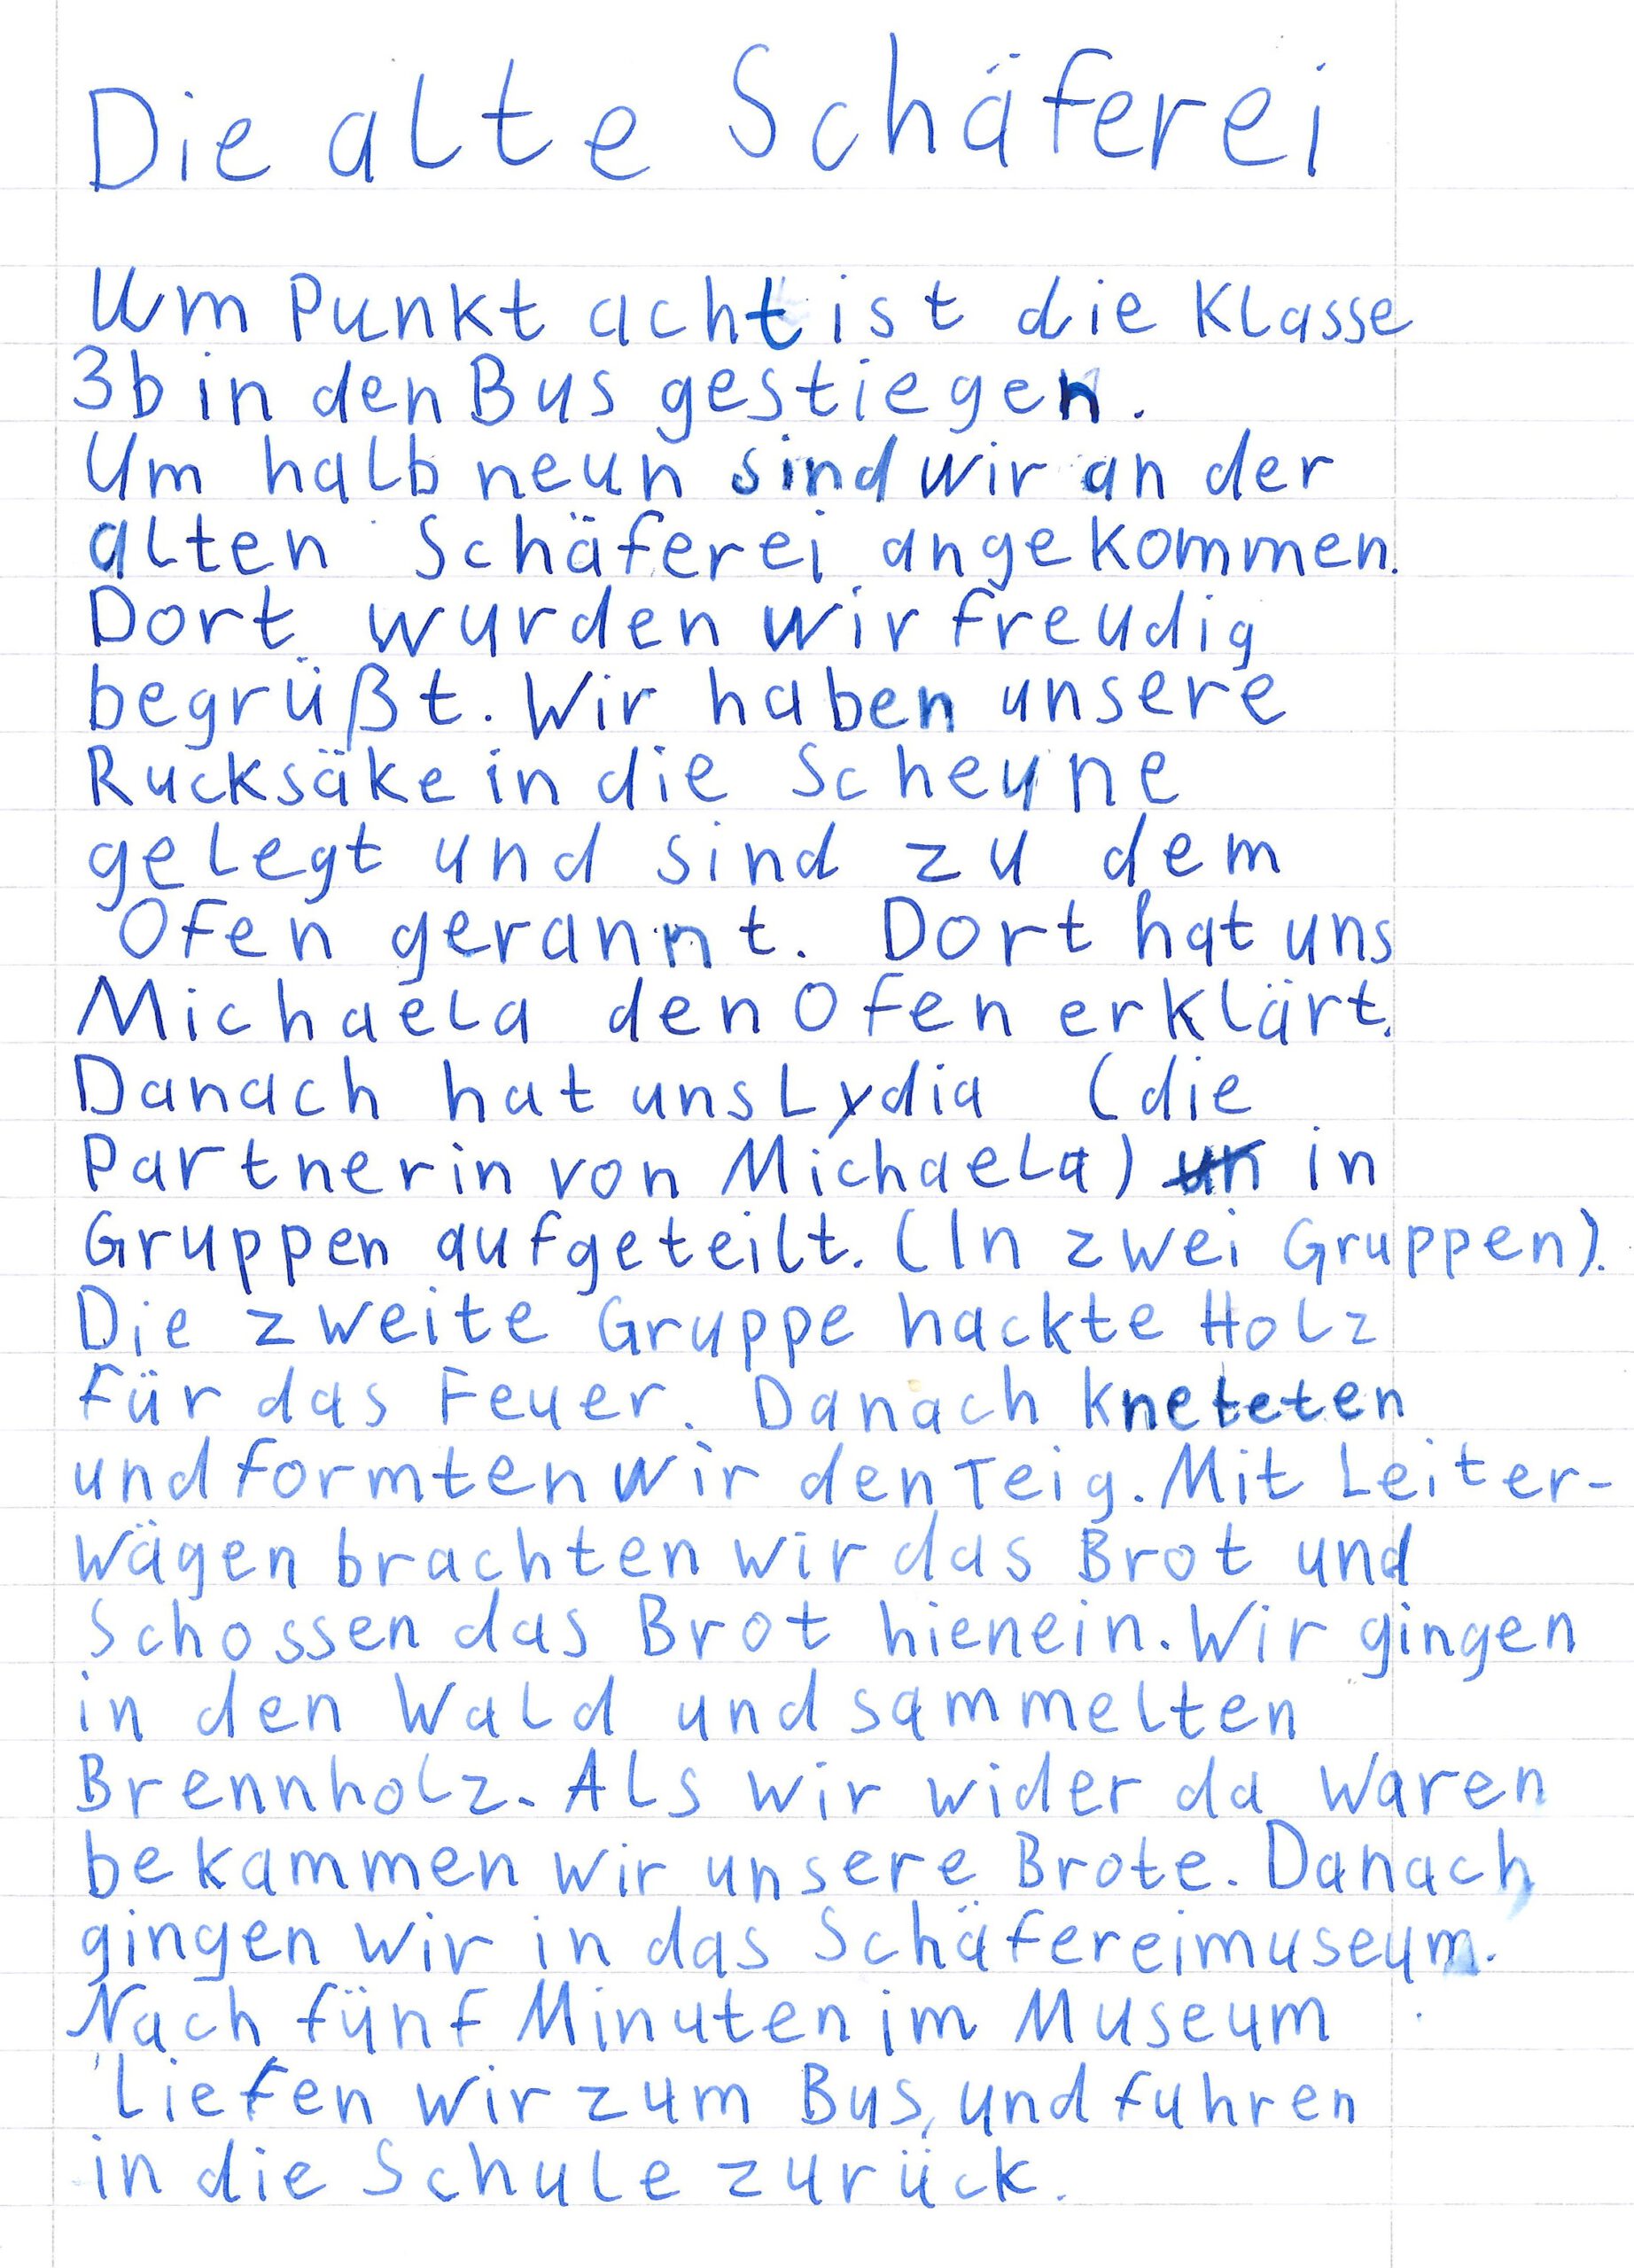 Die alte Schäferei
Um Punkt acht ist die Klasse
3b in den Bus gestiegen.
Um halb neun sind wir an der
alten Schäferei angekommen.
Dort wurden wir freudig
begrüßt. Wir haben unsere
Rucksäke in die Scheune
gelegt und sind zu dem
Ofen gerannt. Dort hat uns
Michaela den Ofen erklärt.
Danach hat uns Lydia (die
Partnerin von Michaela) un in
Gruppen aufgeteilt. (In zwei Gruppen).
Die zweite Gruppe hackte Holz
für das Feuer. Danach kneteten
und formten wir den Teig. Mit Leiter-
wägen brachten wir das Brot und
schossen das Brot hienein. Wir gingen
in den Wald und sammelten
Brennholz. Als wir wider da waren
bekammen wir unsere Brote. Danach
gingen wir in das Schäfereimuseum.
Nach fünf Minuten im Museum
liefen wir zum Bus, und fuhren
in die Schule zurück.